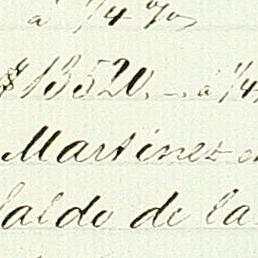 á 1/4 %
$13520. -. á 1/4
Martinez
aldo de la